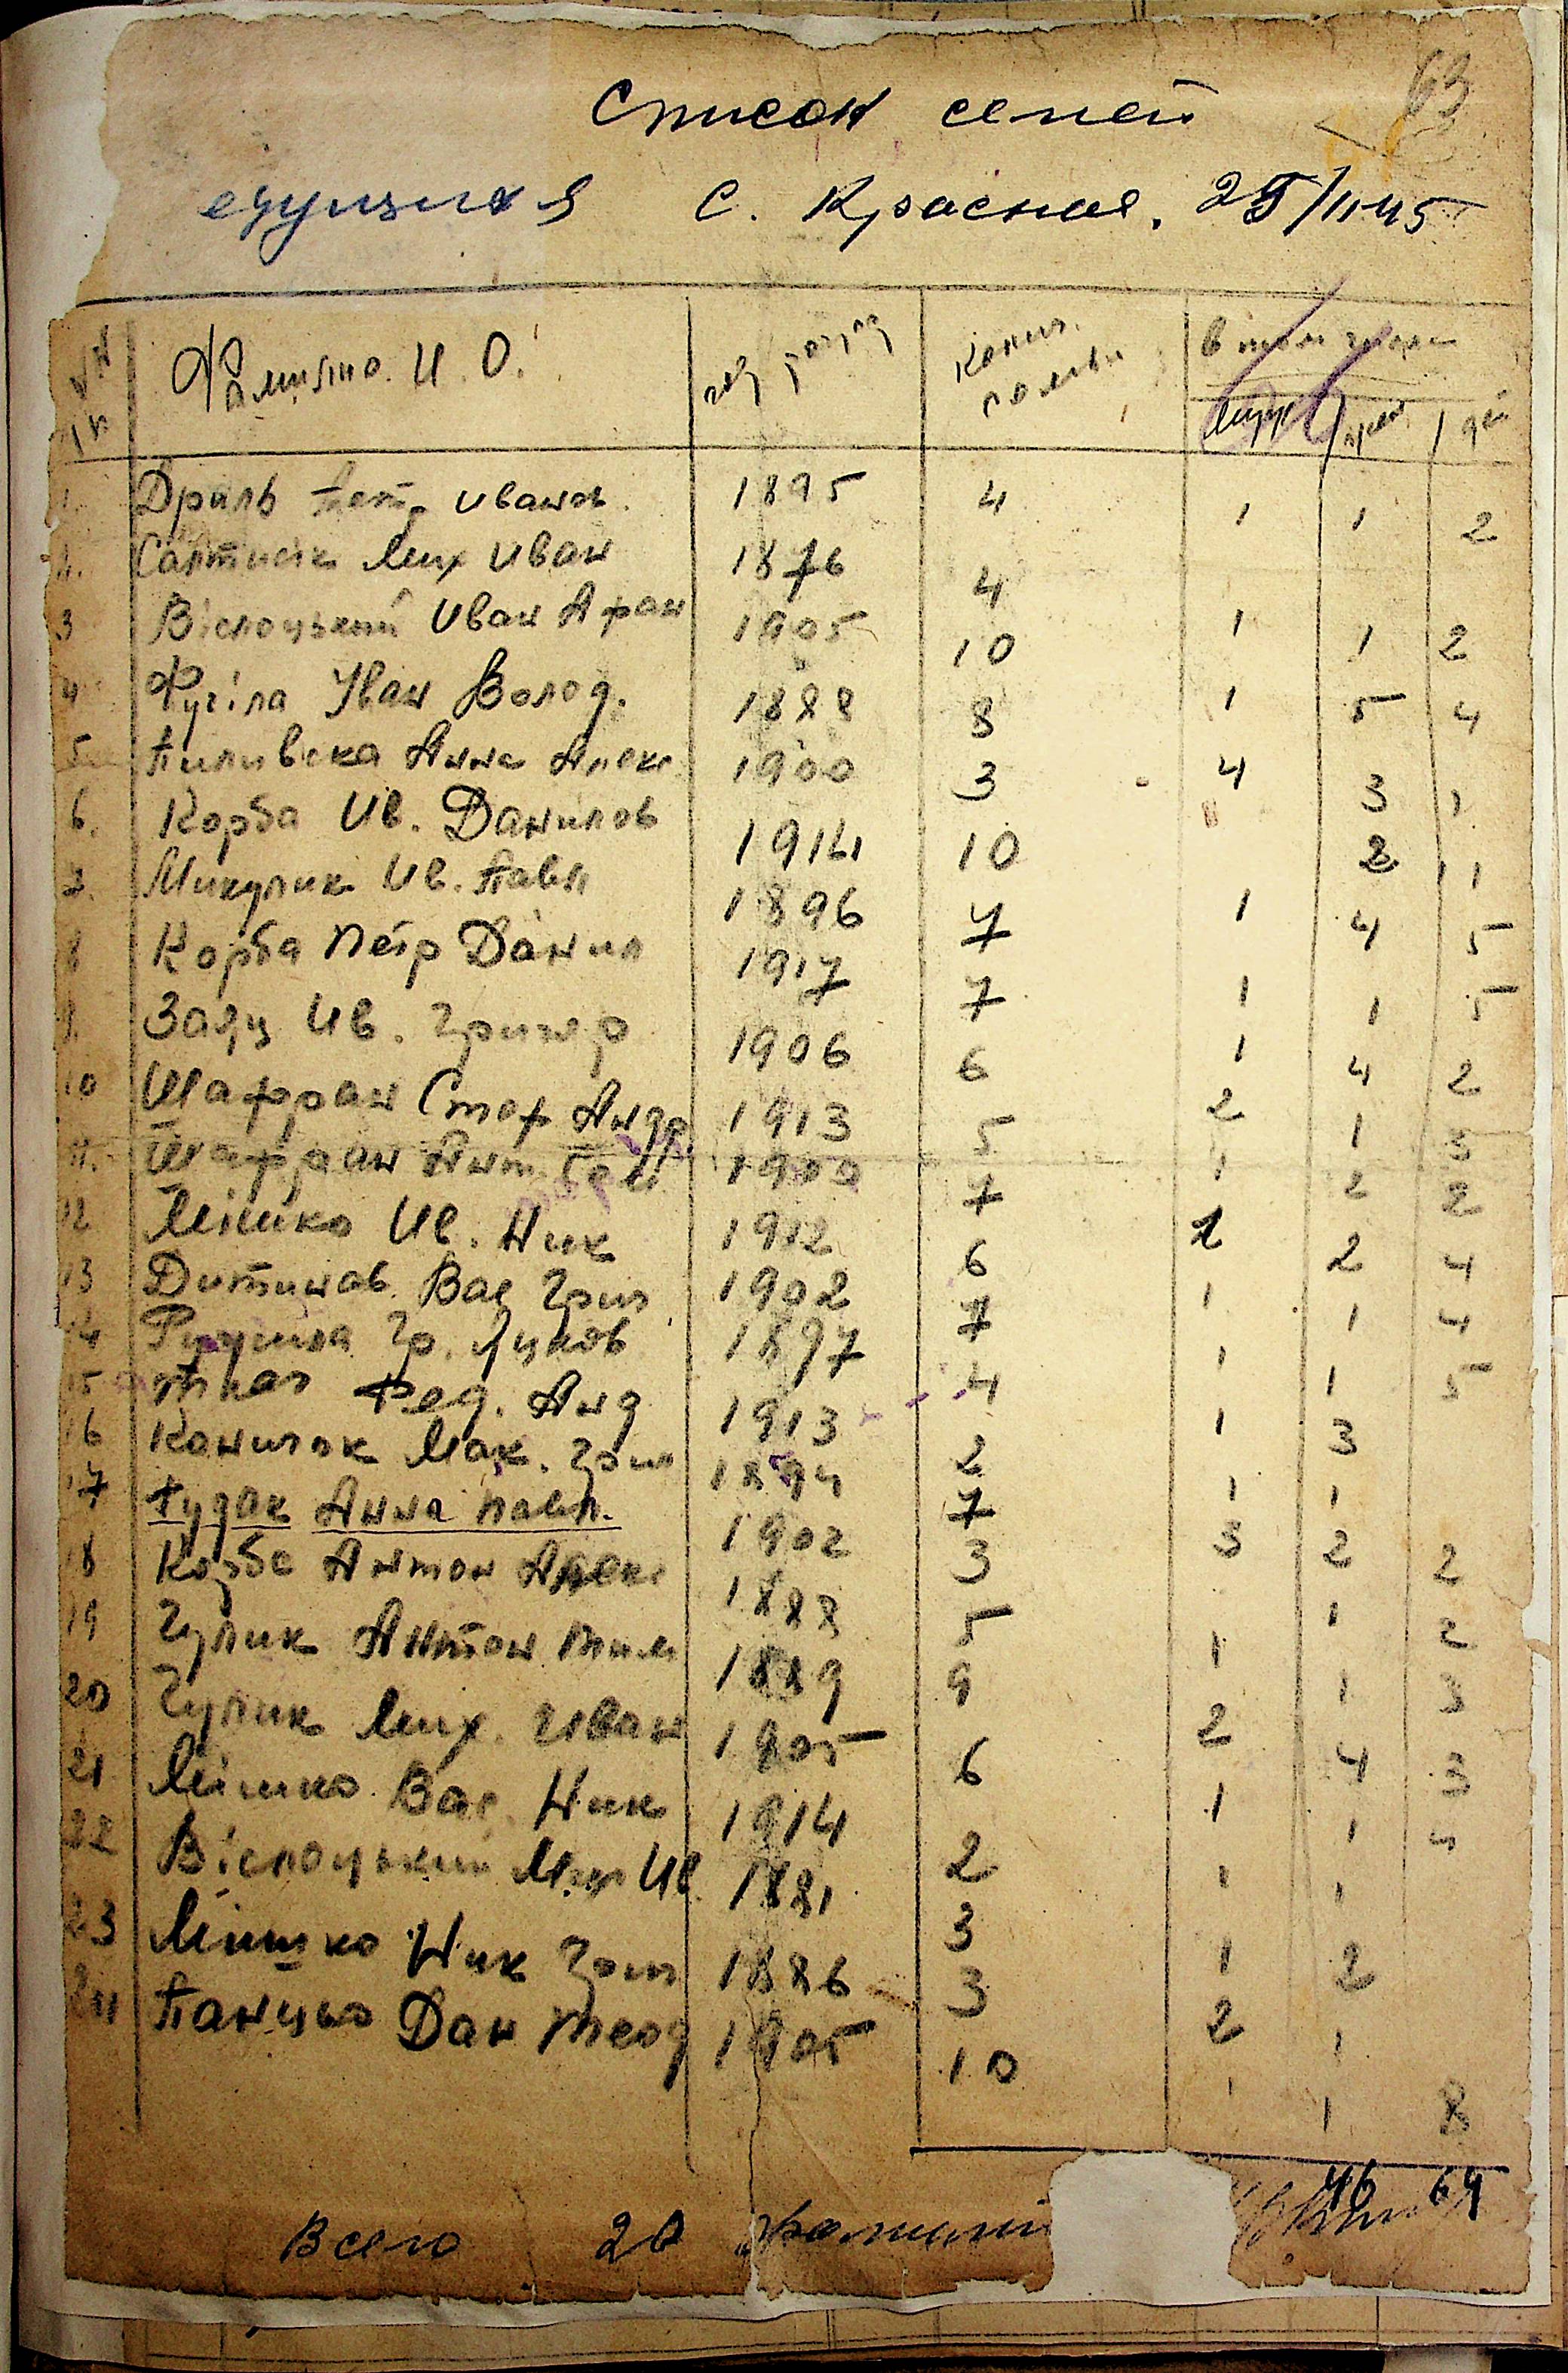 63
Список семей
едущих с. Красная. 25/II-45
Фамилио. И. О. год рожд колич. в том числе
1. Дриль Пет. Иванов. 1895 4 1 1 2
2. Мих Иван 1876 4 1 1 2
3 Віслоцький Иван Афан 1905 10 1 5 4
4 Фучіла Іван Волод. 1888 8 4 3 1
5 Пиливска Анна Алекс. 1900 3 2 1
6. Корба Ив. Данилов 1914 10 1 4 5
7. Микулик Ив. Павл 1896 7 1 1 5
8 Корба Пётр Данил 1917 7 1 4 2
9. Заяц Ив. Григор 1906 6 2 1 3
10 Шафран Стеф Андр. 1913 5 1 2 2
11. Шафран Ант. 1900 7 1 2 4
12 Мішко Ив. Ник 1912 6 1 1 4
13 Вас Григ 1902 7 1 1 5
14 Гр. Яцков 1897 4 1 3
15 Ткач Фед. Анд 1913 2 1 1
16 Канюк Мак. Григ 1894 7 3 2 2
17 Гудак Анна Павл. 1902 3 1 2
18 Корба Антон Алекс 1888 5 1 1 3
19 Гулик Антон Тим 1889 9 2 4 3
20 Гулик Мих. Иван 1905 6 1 1 4
21 Мішко Вас. Ник 1914 2 1 1
22 Віслоцький Мих Ив. 1881 3 1 2
23 Мішко Ник Григ 1886 3 2 1
24 Панцьо Дан Теод 1905 10 1 1 8
46 64
Всего фамилий